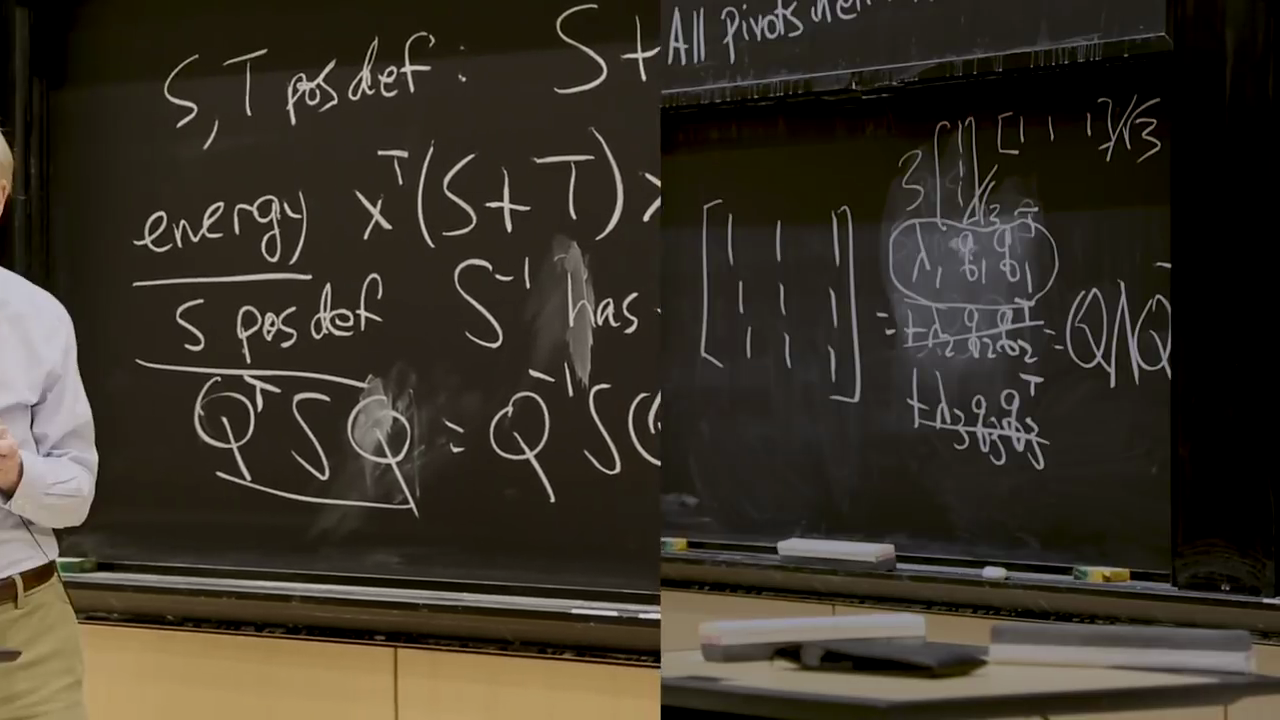 S, T pos def : S +
energy xᵀ(S + T)x
S pos def S⁻¹ has
QᵀSQ = Q⁻¹SQ
All Pivots
3 [1 1 1]/√3 [1 1 1]/√3
[1 1 1
1 1 1
1 1 1] = λ₁ q₁ q₁ᵀ
+ λ₂ q₂ q₂ᵀ = QΛQ
+ λ₃ q₃ q₃ᵀ